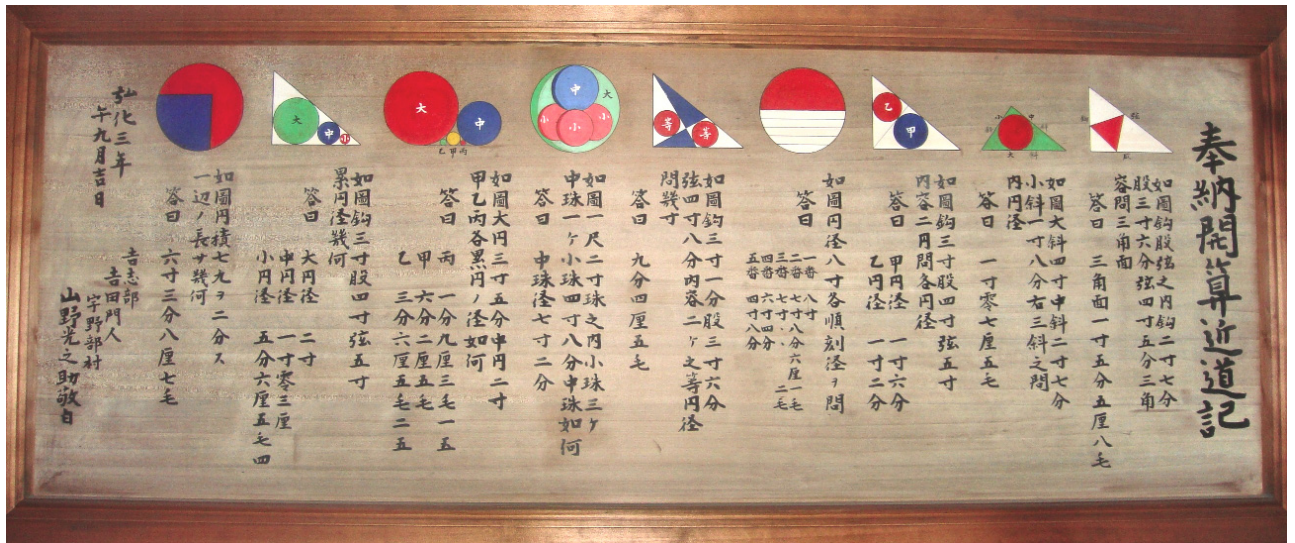 奉納開算近道記
如圖鈎股弦之内鈎二寸七分
股三寸六分弦四寸五分三角
容問三角面
答曰 三角面一寸五分五厘八毛
如圖大斜四寸中斜二寸七分
小斜一寸八分右三斜之問
内円径
答曰 一寸零七厘五毛
如圖鈎三寸股四寸弦五寸
内容二円問各円径
答曰 甲円径 一寸六分
乙円径 一寸二分
如圖円径八寸各順刻径ヲ問
答曰
一番 八寸
二番 七寸八分六厘一毛
三番 七寸
四番 六寸四分 二毛
五番 四寸八分
如圖鈎三寸一分股三寸六分
弦四寸八分内容二ヶ之等円径
問幾寸
答曰 九分四厘五毛
如圖一尺二寸珠之内小珠三ヶ
中珠一ヶ小珠四寸八分中珠如何
答曰 中珠径七寸二分
如圖大円三寸五分中円二寸
甲乙丙各累円ノ径如何
答曰 丙 一分九厘三毛一五
甲 六分二厘五毛
乙 三分六厘五毛二五
如圖鈎三寸股四寸弦五寸
累円径幾何
答曰 大円径 二寸
中円径 一寸零三厘
小円径 五分六厘五毛四
如圖円積七九ヲ二分ス
一辺ノ長サ幾何
答曰 六寸三分八厘七毛
弘化三年
午九月吉日
吉志部
吉田門人
宇野部村
山野光之助敬白
大
中
小
大
中
乙甲丙
中
大
小
小
小
等
等
乙
甲
小
中
斜
斜
大
斜
鈎
弦
股